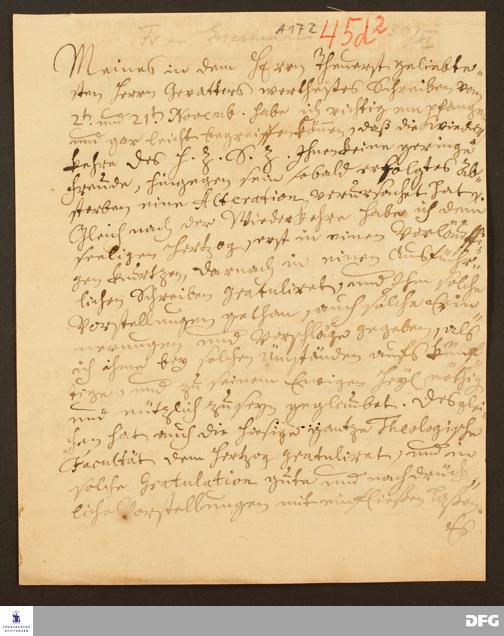 A172
45d²
Meines in dem HErrn Theuerst geliebte-
sten Herrn Gevatters werthestes Schreiben vom
2t. und 21t. Novemb. habe ich richtig empfangen
und gar leicht begreiffen können, daß die wieder-
kehre des H. Z. S. Z. Ihnen keine geringe
Freude, hingegen sein sobald erfolgtes Ab-
sterben eine Alteration verursachet hat.
Gleich nach der Wiederkehre habe ich dem
seeligen Hertzog, erst in einen Vorläuffi-
gen kurtzen, darnach in einen Ausführ-
lichen Schreiben gratuliret, und Ihm solche
Vorstellungen gethan, auch solche Erin-
nerungen und Vorschläge gegeben, als
ich ihme bey solchen Umständen aufs künff-
tige, und zu seinem Ewigen Heyl nöthig
und nützlich zu seyn geglaubet. Desglei-
chen hat auch die hiesige gantze Theologische
Facultät dem Hertzog gratuliret, und in
solche Gratulation gute und nachdrück-
liche Vorstellungen mit einfließen laßen.
Es
FRANCKESCHE STIFTUNGEN
DFG